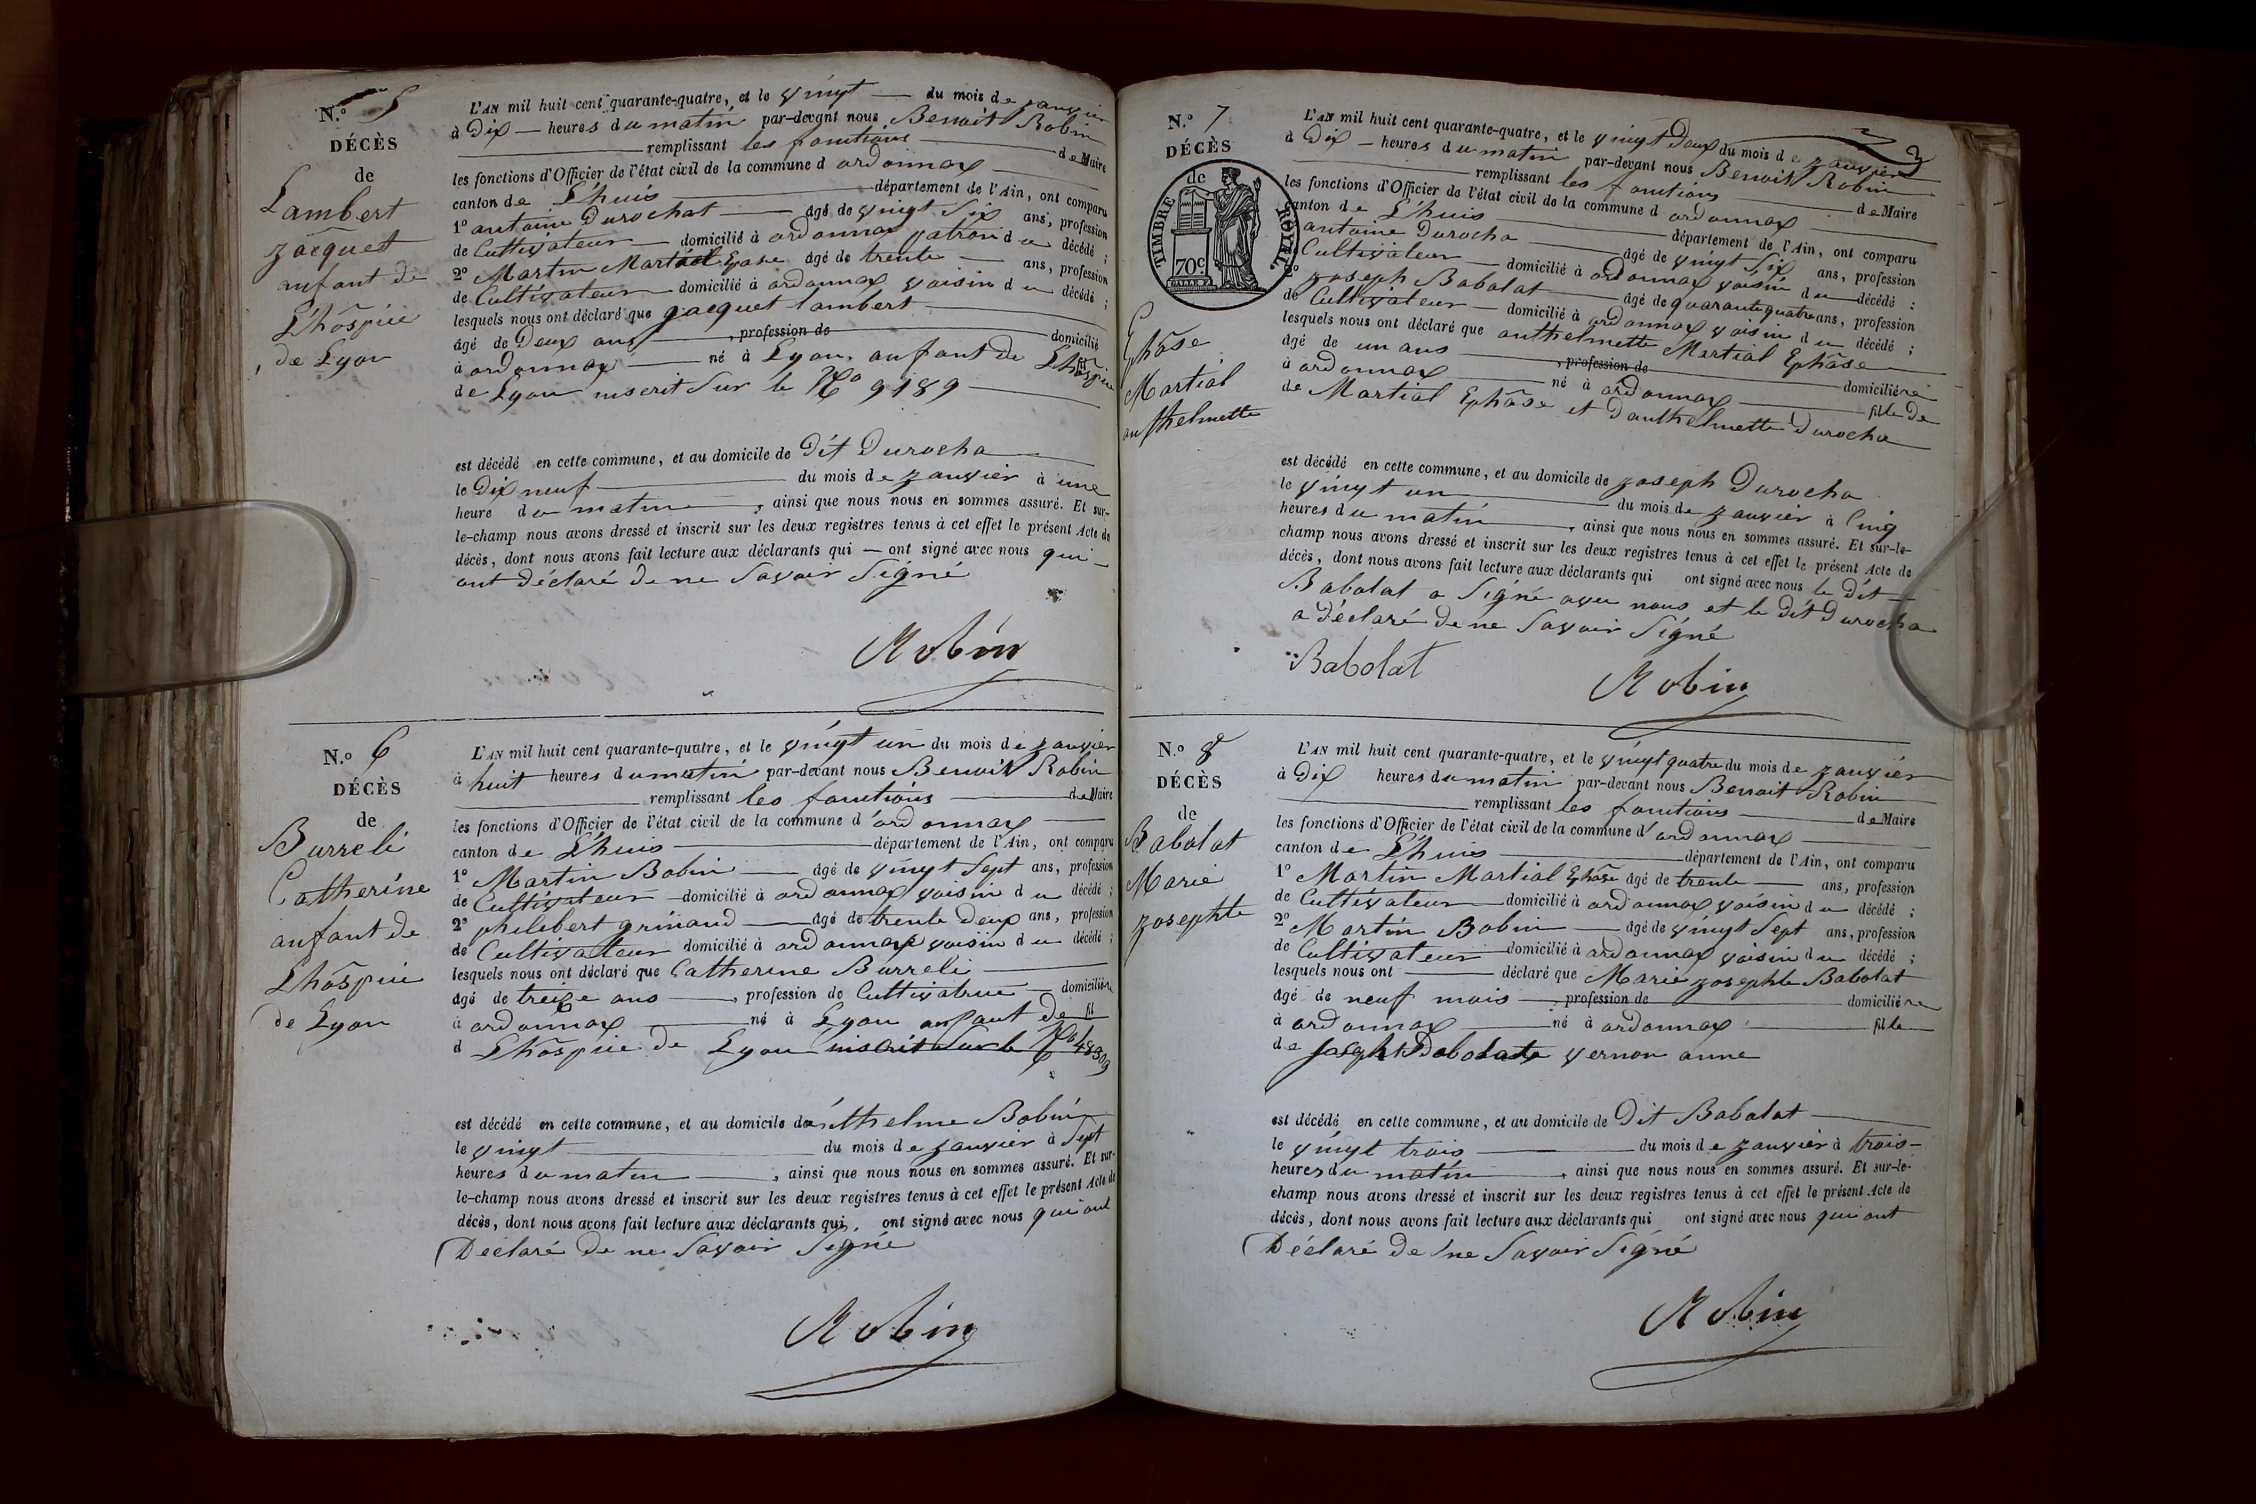 N.o 5
DÉCÈS
de
Lambert
Jacquet
anfant de
L'hôspice
de Lyon
L'AN mil huit cent quarante-quatre, et le vingt du mois de janvier
à Dix heures du matin par-devant nous Benoit Robin
remplissant les fonctions de Maire
les fonctions d'Officier de l'état civil de la commune d ordonnax
canton de L'huis département de l'Ain, ont comparu
1° antoine Durochat âgé de vingt Six ans, profession
de Cultivateur domicilié à ordonnax patron du décédé ;
2° Martin Martial Ephase âgé de trente ans, profession
de Cultivateur domicilié à ordonnax voisin du décédé ;
lesquels nous ont déclaré que jacquet lambert
âgé de Deux ans , profession de domicilié
à ordonnax né à Lyon, anfant de L'hôspice
de Lyon inscrit Sur le No 9189
est décédé en cette commune, et au domicile de Dit Durocha
le Dix neuf du mois de janvier à une
heure du matin , ainsi que nous nous en sommes assuré. Et sur-
le-champ nous avons dressé et inscrit sur les deux registres tenus à cet effet le présent Acte de
décès, dont nous avons fait lecture aux déclarants qui — ont signé avec nous qui
ont déclaré de ne Savoir Signé
Robin
N.o 6
DÉCÈS
de
Burreli
Catherine
anfant de
L'hôspice
de Lyon
L'AN mil huit cent quarante-quatre, et le vingt un du mois de janvier
à huit heures du matin par-devant nous Benoit Robin
remplissant les fonctions de Maire
les fonctions d'Officier de l'état civil de la commune d'ordonnax
canton de L'huis département de l'Ain, ont comparu
1° Martin Bobin âgé de vingt Sept ans, profession
de Cultivateur domicilié à ordonnax voisin du décédé ;
2° philibert grinand âgé de trente deux ans, profession
de Cultivateur domicilié à ordonnax voisin du décédé ;
lesquels nous ont déclaré que Catherine Burreli
âgé de treize ans , profession de Cultivatrice domiciliée
à ordonnax né à Lyon anfant de fil
d L'hôspice de Lyon inscrit Sur le No 48309
est décédé en cette commune, et au domicile danthelme Bobin
le vingt du mois de janvier à Sept
heures du matin , ainsi que nous nous en sommes assuré. Et sur-
le-champ nous avons dressé et inscrit sur les deux registres tenus à cet effet le présent Acte de
décès, dont nous avons fait lecture aux déclarants qui, ont signé avec nous qui ont
Déclaré de ne Savoir Signé
Robin
3
N.o 7
DÉCÈS
de
TIMBRE ROYAL.
70c.
Ephâse
Martial
anthelmette
L'AN mil huit cent quarante-quatre, et le vingt Deux du mois de janvier
à Dix heures du matin par-devant nous Benoit Robin
remplissant les fonctions de Maire
les fonctions d'Officier de l'état civil de la commune d ordonnax
canton de L'huis département de l'Ain, ont comparu
antoine Durocha âgé de vingt Six ans, profession
Cultivateur domicilié à ordonnax voisin du décédé :
joseph Babolat âgé de quarante quatre ans, profession
de Cultivateur domicilié à ordonnax voisin du décédé ;
lesquels nous ont déclaré que anthelmette Martial Ephâse
âgé de un ans , profession de domiciliée
à ordonnax né à ordonnax fille de
de Martial Ephâse et Danthelmette Durocha
est décédé en cette commune, et au domicile de joseph Durocha
le vingt un du mois de janvier à Cinq
heures du matin , ainsi que nous nous en sommes assuré. Et sur-le-
champ nous avons dressé et inscrit sur les deux registres tenus à cet effet le présent Acte de
décès, dont nous avons fait lecture aux déclarants qui ont signé avec nous le dit
Babolat a Signé avec nous et le Dit Durocha
a Déclaré de ne Savoir Signé
Babolat Robin
N.o 8
DÉCÈS
de
Babolat
Marie
josephte
L'AN mil huit cent quarante-quatre, et le vingt quatre du mois de janvier
à Dix heures du matin par-devant nous Benoit Robin
remplissant les fonctions de Maire
les fonctions d'Officier de l'état civil de la commune d'ordonnax
canton de L'huis département de l'Ain, ont comparu
1° Martin Martial Ephâse âgé de trente ans, profession
de Cultivateur domicilié à ordonnax voisin du décédé ;
2° Martin Bobin âgé de vingt Sept ans, profession
de Cultivateur domicilié à ordonnax voisin du décédé ;
lesquels nous ont déclaré que Marie josephte Babolat
âgé de neuf mois , profession de domiciliée
à ordonnax né à ordonnax fille
de Joseph Babolat vernon anne
est décédé en cette commune, et au domicile de Dit Babolat
le vingt trois du mois de janvier à trois
heures du matin , ainsi que nous nous en sommes assuré. Et sur-le-
champ nous avons dressé et inscrit sur les deux registres tenus à cet effet le présent Acte de
décès, dont nous avons fait lecture aux déclarants qui ont signé avec nous qui ont
Déclaré de ne Savoir Signé
Robin